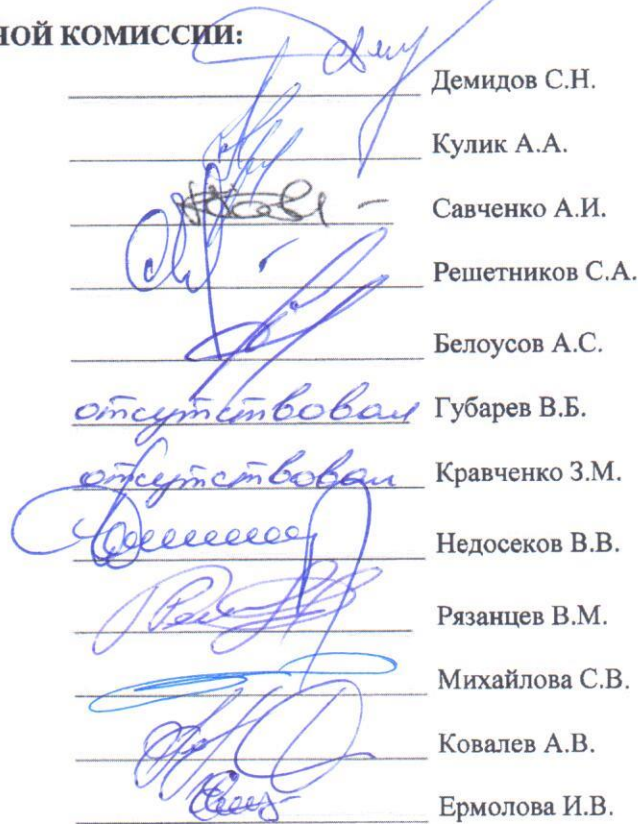 НОЙ КОМИССИИ:
Демидов С.Н.
Кулик А.А.
Савченко А.И.
Решетников С.А.
Белоусов А.С.
отсутствовал Губарев В.Б.
отсутствовал Кравченко З.М.
Недосеков В.В.
Рязанцев В.М.
Михайлова С.В.
Ковалев А.В.
Ермолова И.В.